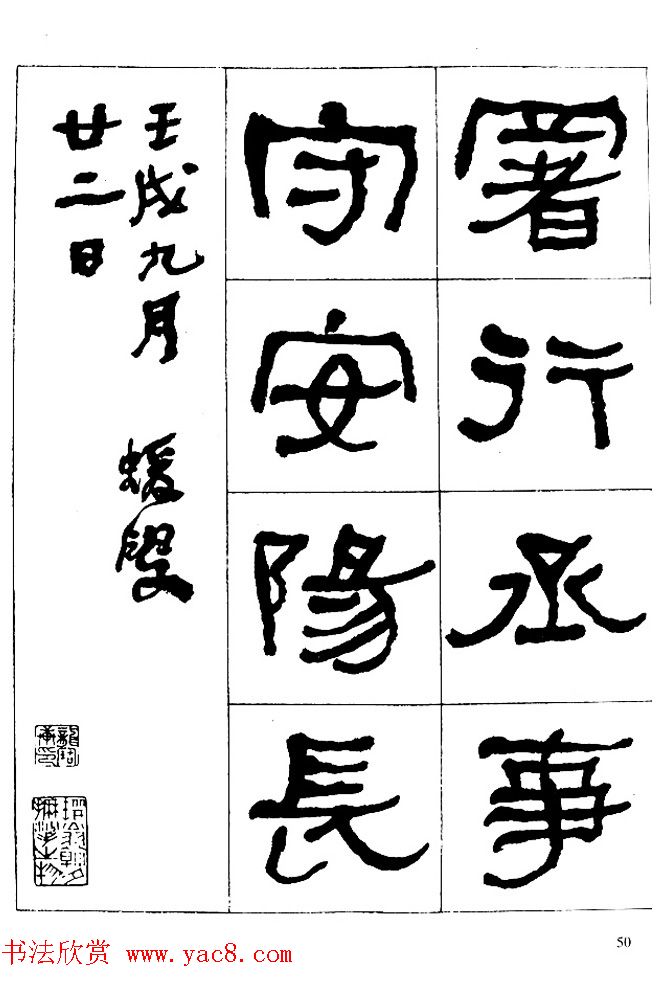 署行丞事
守安陽長
壬戌九月 蝯叟
廿二日
50
书法欣赏 www.yac8.com